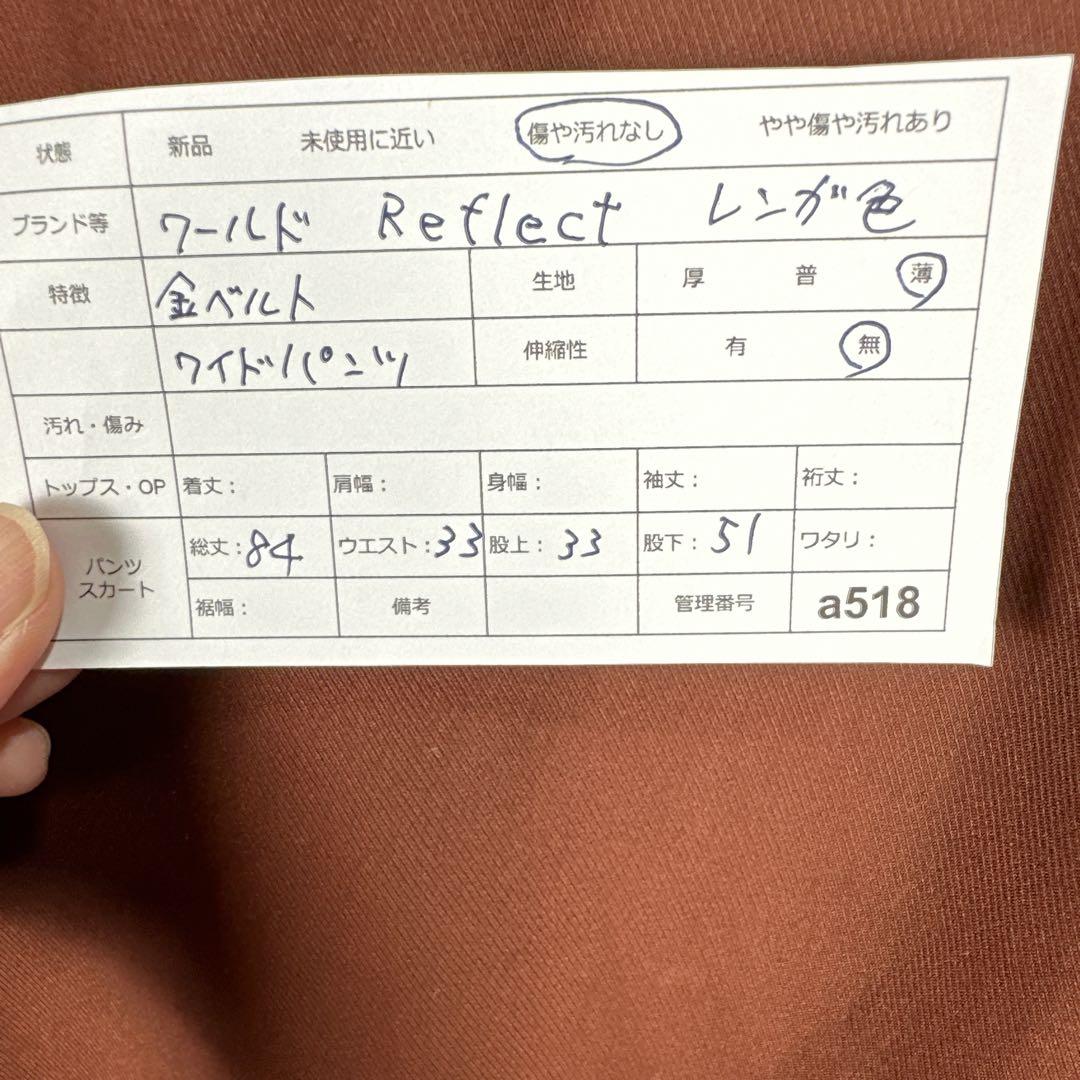 状態 新品 未使用に近い 傷や汚れなし やや傷や汚れあり
ブランド等 ワールド Reflect レンガ色
特徴 金ベルト 生地 厚 普 薄
ワイドパンツ 伸縮性 有 無
汚れ・傷み
トップス・OP 着丈： 肩幅： 身幅： 袖丈： 裄丈：
パンツ スカート 総丈：84 ウエスト：33 股上：33 股下：51 ワタリ：
裾幅： 備考 管理番号 a518